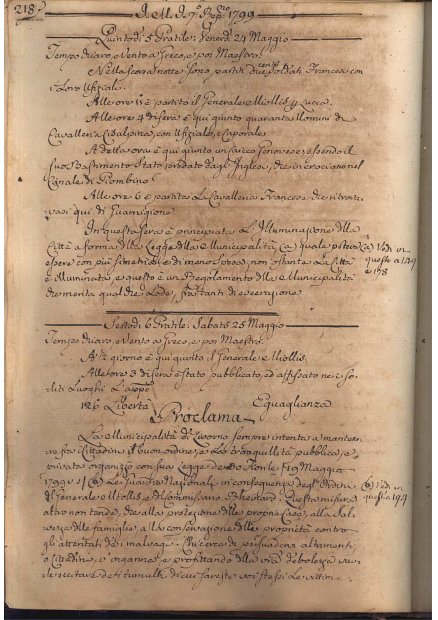 218
1799
Quintodì 5 Pratile: Venerdì 24 Maggio
Tempo chiaro, e Vento a Greco, e poi Maestro.
Nella scorsa notte sono partiti due cento Soldati Francesi con
i Loro Ufiziali.
Alle ore 11 è partito il Generale Miollis p. Lucca.
Alle ore 4 di sera è qui giunto quaranta Uomini di
Cavalleria Cisalpina, con Ufiziale, e Caporale
A detta ora è qui giunto un Genovese, essendo il
suo Bastimento stato predato dagl'Inglesi, che incrociano nel
Canale di Piombino.
Alle ore 6 è partita La Cavalleria Francese che ritro-
vavasi qui di Guarnigione.
In questa sera è principiata L'Illuminazione della
Città a forma della Legge della Municipalità, (a) quale poteva
essere con più simetria, e di meno spesa, non ostante La Città
è illuminata, e questo è un Regolamento della Municipalità
che merita qualche Lode, fra tanti di esecrazione
(a) Vedi in
questo a 149
e 178
Sestodì 6 Pratile: Sabato 25 Maggio
Tempo chiaro, e Vento a Greco, e poi Maestro.
A ½ giorno è qui giunto il Generale Miollis.
Alle ore 3 di sera è stato pubblicato, ed affissato ne i so-
liti Luoghi L'app.
Libertà Eguaglianza
Proclama
La Municipalità di Livorno sempre intenta a mantene-
re fra i Cittadini il buon ordine, e La tranquillità pubblica, e
privata organizò con sua Legge de 30 Fiorile 19 Maggio
1799 (b) Le Guardie Nazionali in conseguenza degl'Ordini
del Generale Miollis, e del Commissario Questa misura
altro non tende, che alla protezione delle proprie Case, alla Sal-
vezza delle famiglie, alla conservazione delle proprietà contro
gli attentati de i malvagi. Chi cerca di persuadervi altrimenti,
o Cittadini, v'inganna, e profittando della vostra debolezza vuo-
le eccitare de i tumulti, di cui sareste voi stessi Le vittime.
(b) Vedi in
questo 194